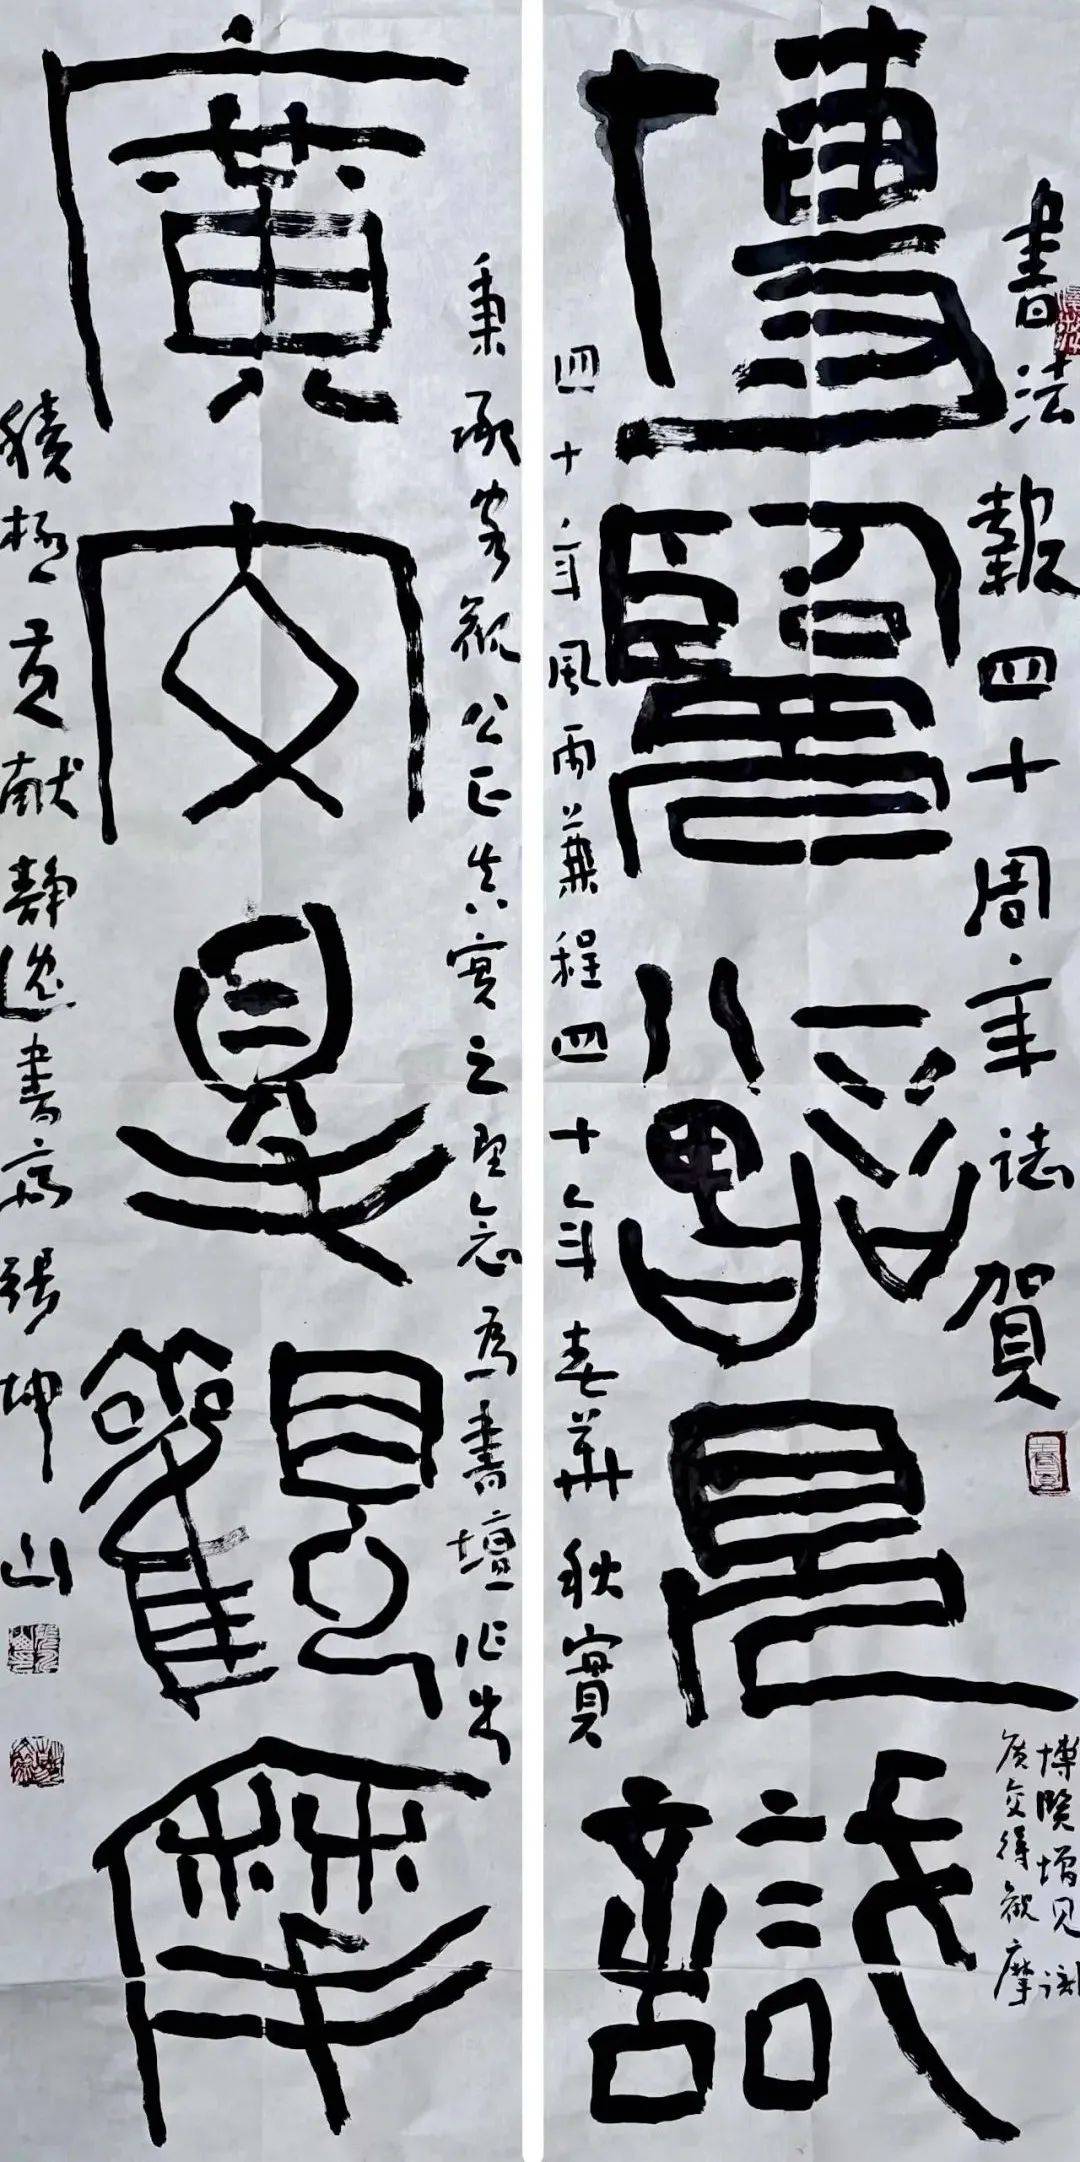 書法報四十周年誌賀
博覽增見識
博览增见识
廣交得觀摩
四十年風雨兼程四十年春華秋實
秉承客觀公正真實之理念為書壇作出
廣交得觀摩
積極貢献靜逸書齋張坤山